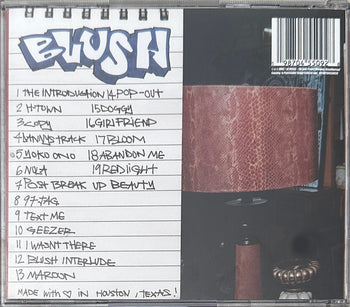 BLUSH
1 THE INTRODUCTION 14 POP-OUT
2 H-TOWN 15 DOGGY
3 COPY 16 GIRLFRIEND
4 DANNYS TRACK 17 BLOOM
5 YOKO ONO 18 ABANDON ME
6 NOLA 19 RED LIGHT
7 POST BREAK UP BEAUTY
8 97-TAG
9 TEXT ME
10 GEEZER
11 I WASNT THERE
12 BLUSH INTERLUDE
13 MAROON
MADE with ♡ IN HOUSTON, TEXAS!